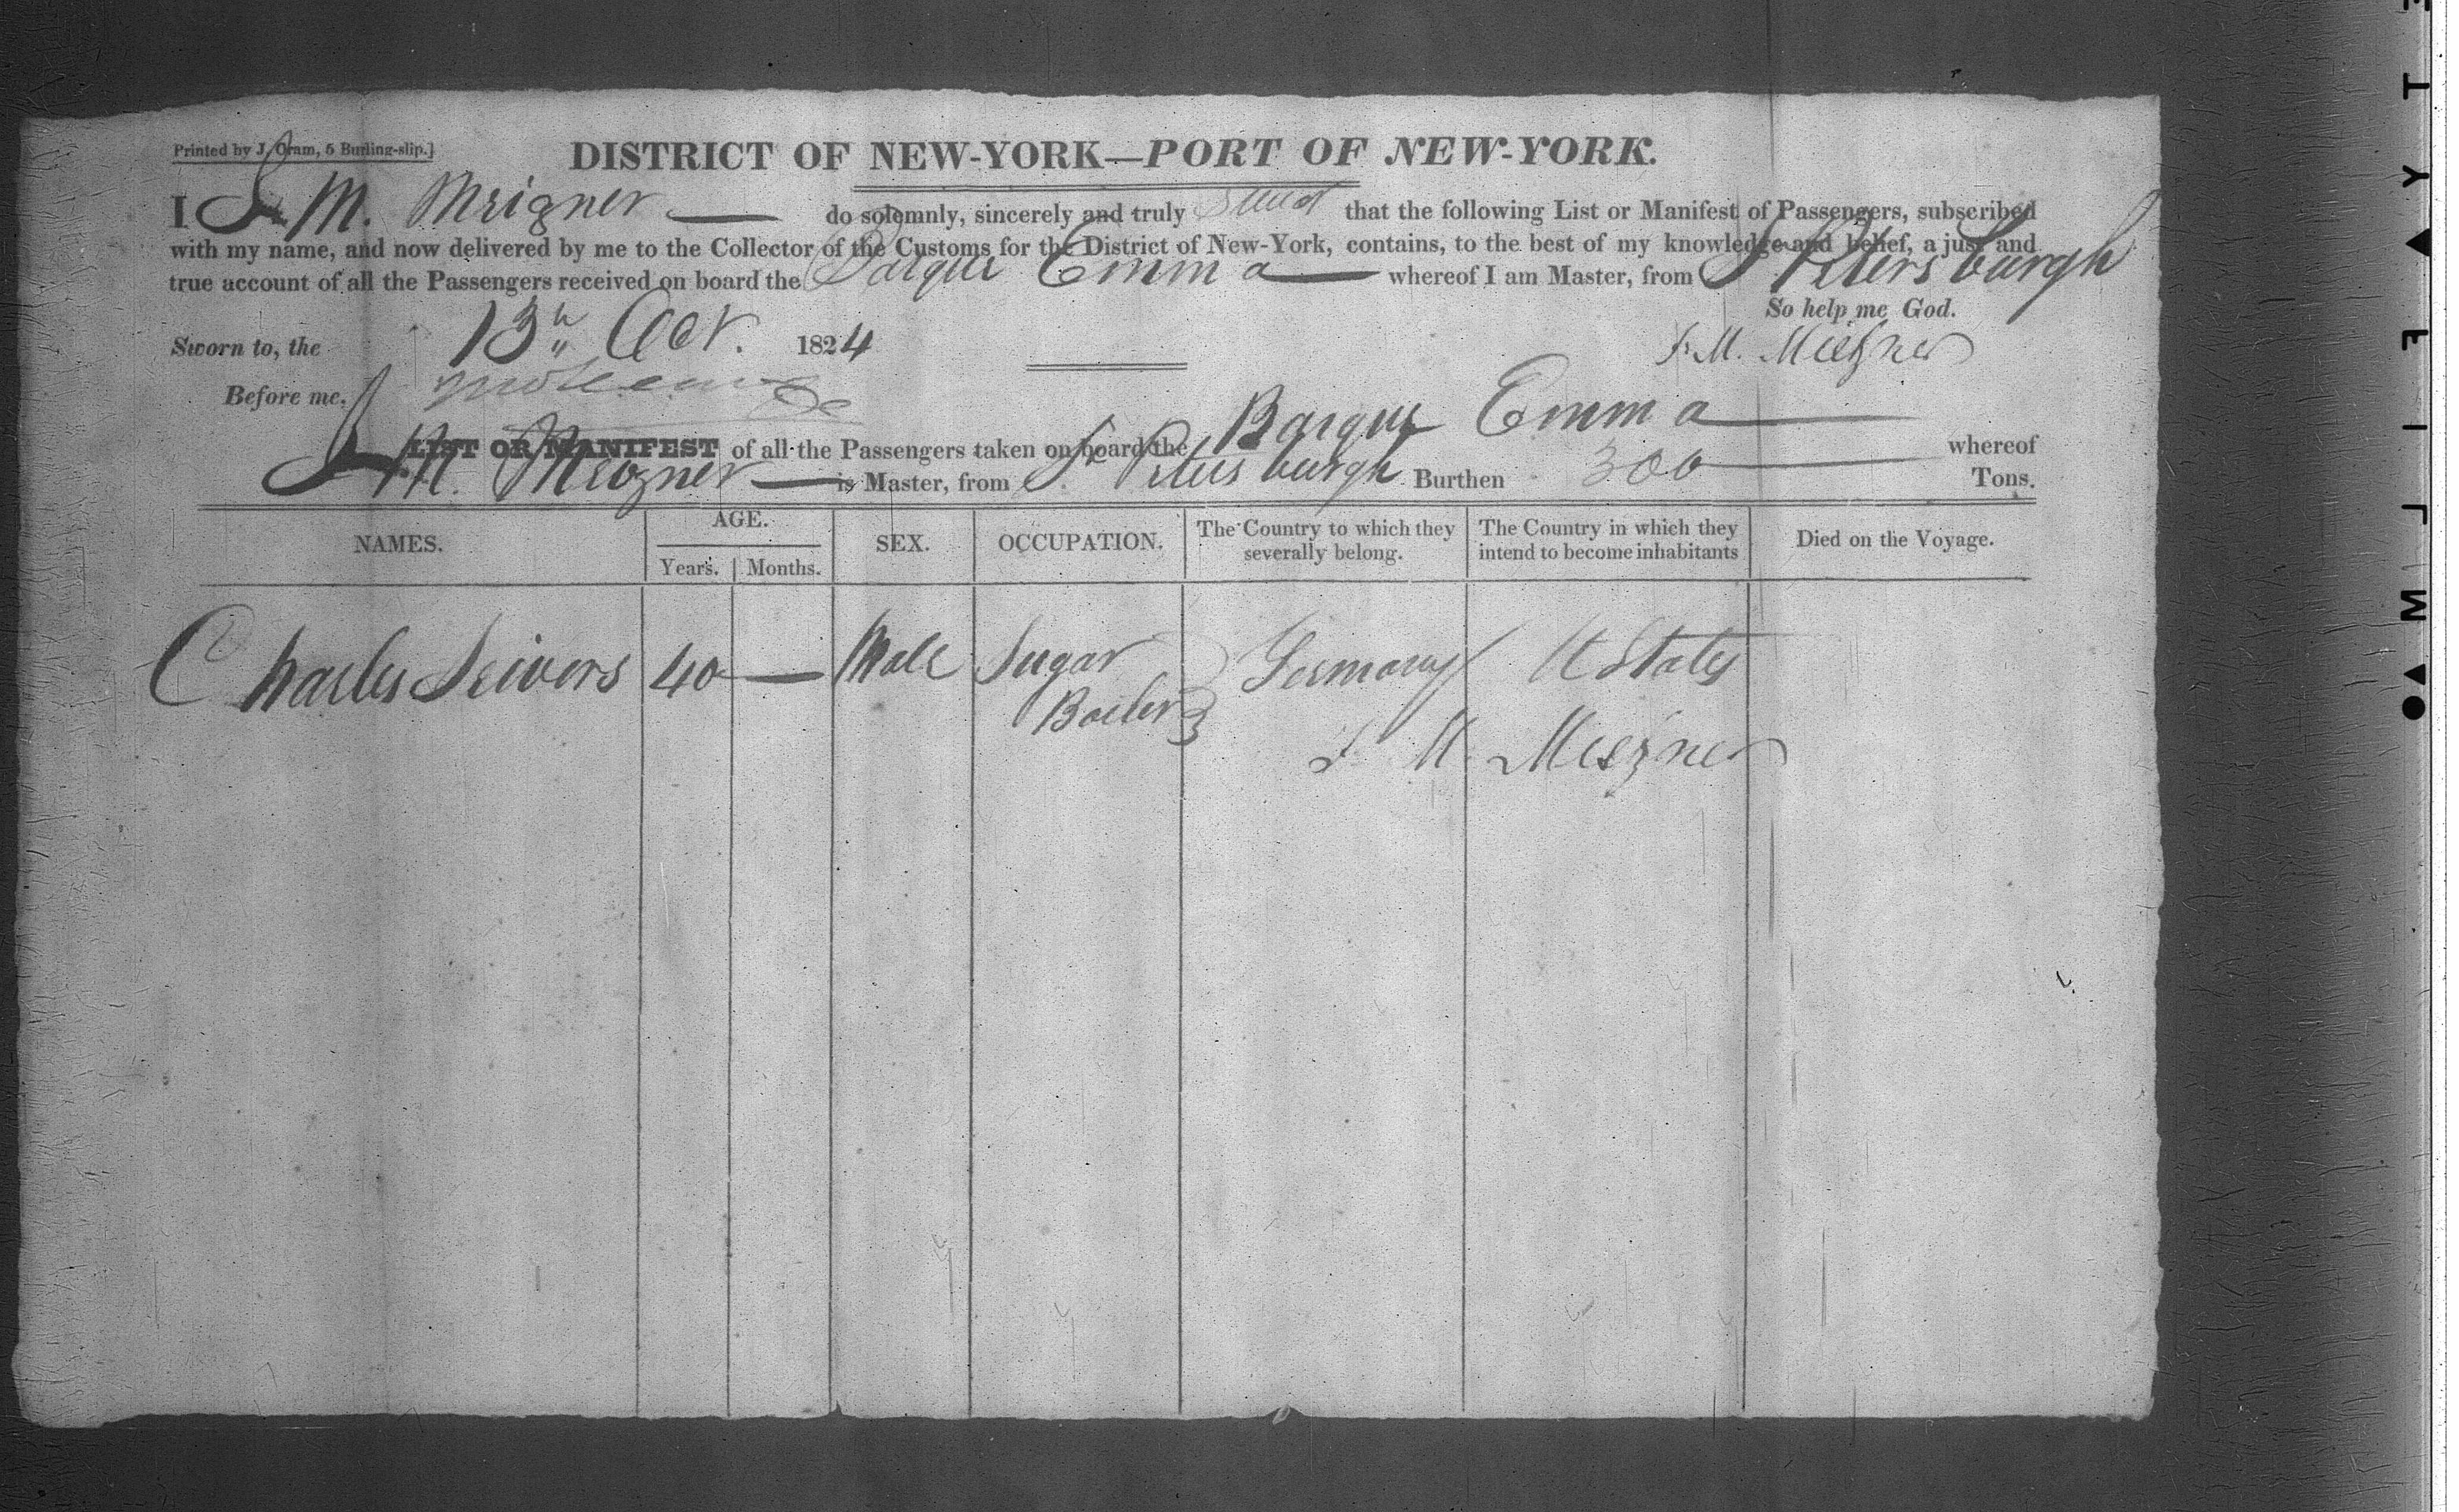 Printed by J. Oram, 5 Burling-slip.]
DISTRICT OF NEW-YORK—PORT OF NEW-YORK.
I J. M. Meizner do solemnly, sincerely and truly swear that the following List or Manifest of Passengers, subscribed
with my name, and now delivered by me to the Collector of the Customs for the District of New-York, contains, to the best of my knowledge and belief, a just and
true account of all the Passengers received on board the Barque Emma whereof I am Master, from St Petersburgh
So help me God.
Sworn to, the 13th Oct. 1824
J. M. Miezner
Before me,
LIST OR MANIFEST of all the Passengers taken on board the Barque Emma whereof
J. M. Meizner is Master, from St Petersburgh Burthen 300 Tons.
NAMES. AGE. SEX. OCCUPATION. The Country to which they severally belong. The Country in which they intend to become inhabitants Died on the Voyage.
Years. Months.
Charles Seivers 40 — Male Sugar Boiler Germany U States
J. M. Miezner